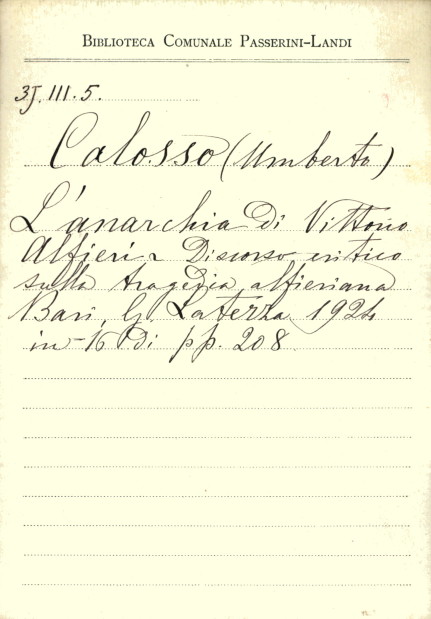 BIBLIOTECA COMUNALE PASSERINI-LANDI
3J.III.5.
Calosso (Umberto)
L'anarchia di Vittorio
Alfieri - Discorso critico
sulla tragedia alfieriana
Bari, G. Laterza 1924
in-16 di pp. 208